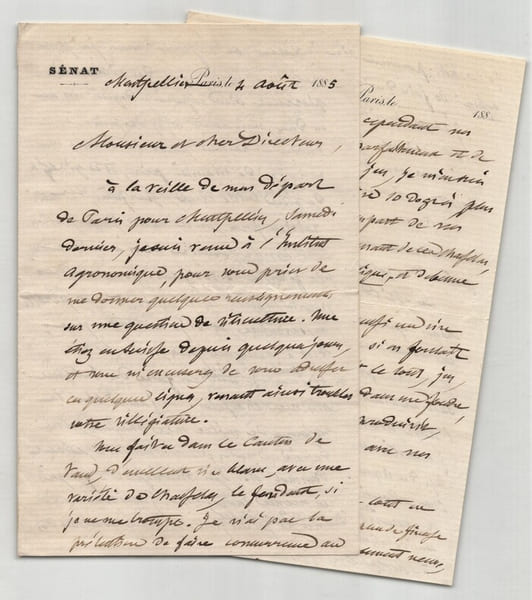 SÉNAT
Montpellier Paris le 4 août 1885
Monsieur et cher Directeur,
à la veille de mon départ
de Paris pour Montpellier, Samedi
dernier, je suis venu à l'Institut
Agronomique, pour vous prier de
me donner quelques renseignements
sur une question de viticulture. Vous
étiez en Suisse depuis quelques jours,
et vous m'excuserez de vous adresser
ces quelques lignes, venant ainsi troubler
votre villégiature.
Vous faites dans le Canton de
Vaud, d'excellent vin blanc, avec une
variété de chasselas, le fendant, si
je ne me trompe. Je n'ai pas la
prétention de faire concurrence au
Paris le 188
cependant nos
et de
jus, je n'aurais
10 degrés plus
part de nos
de ces chasselas,
et donne
un vin
si on foulait
le tout, jus,
dans un foudre,
avec nos
tout en